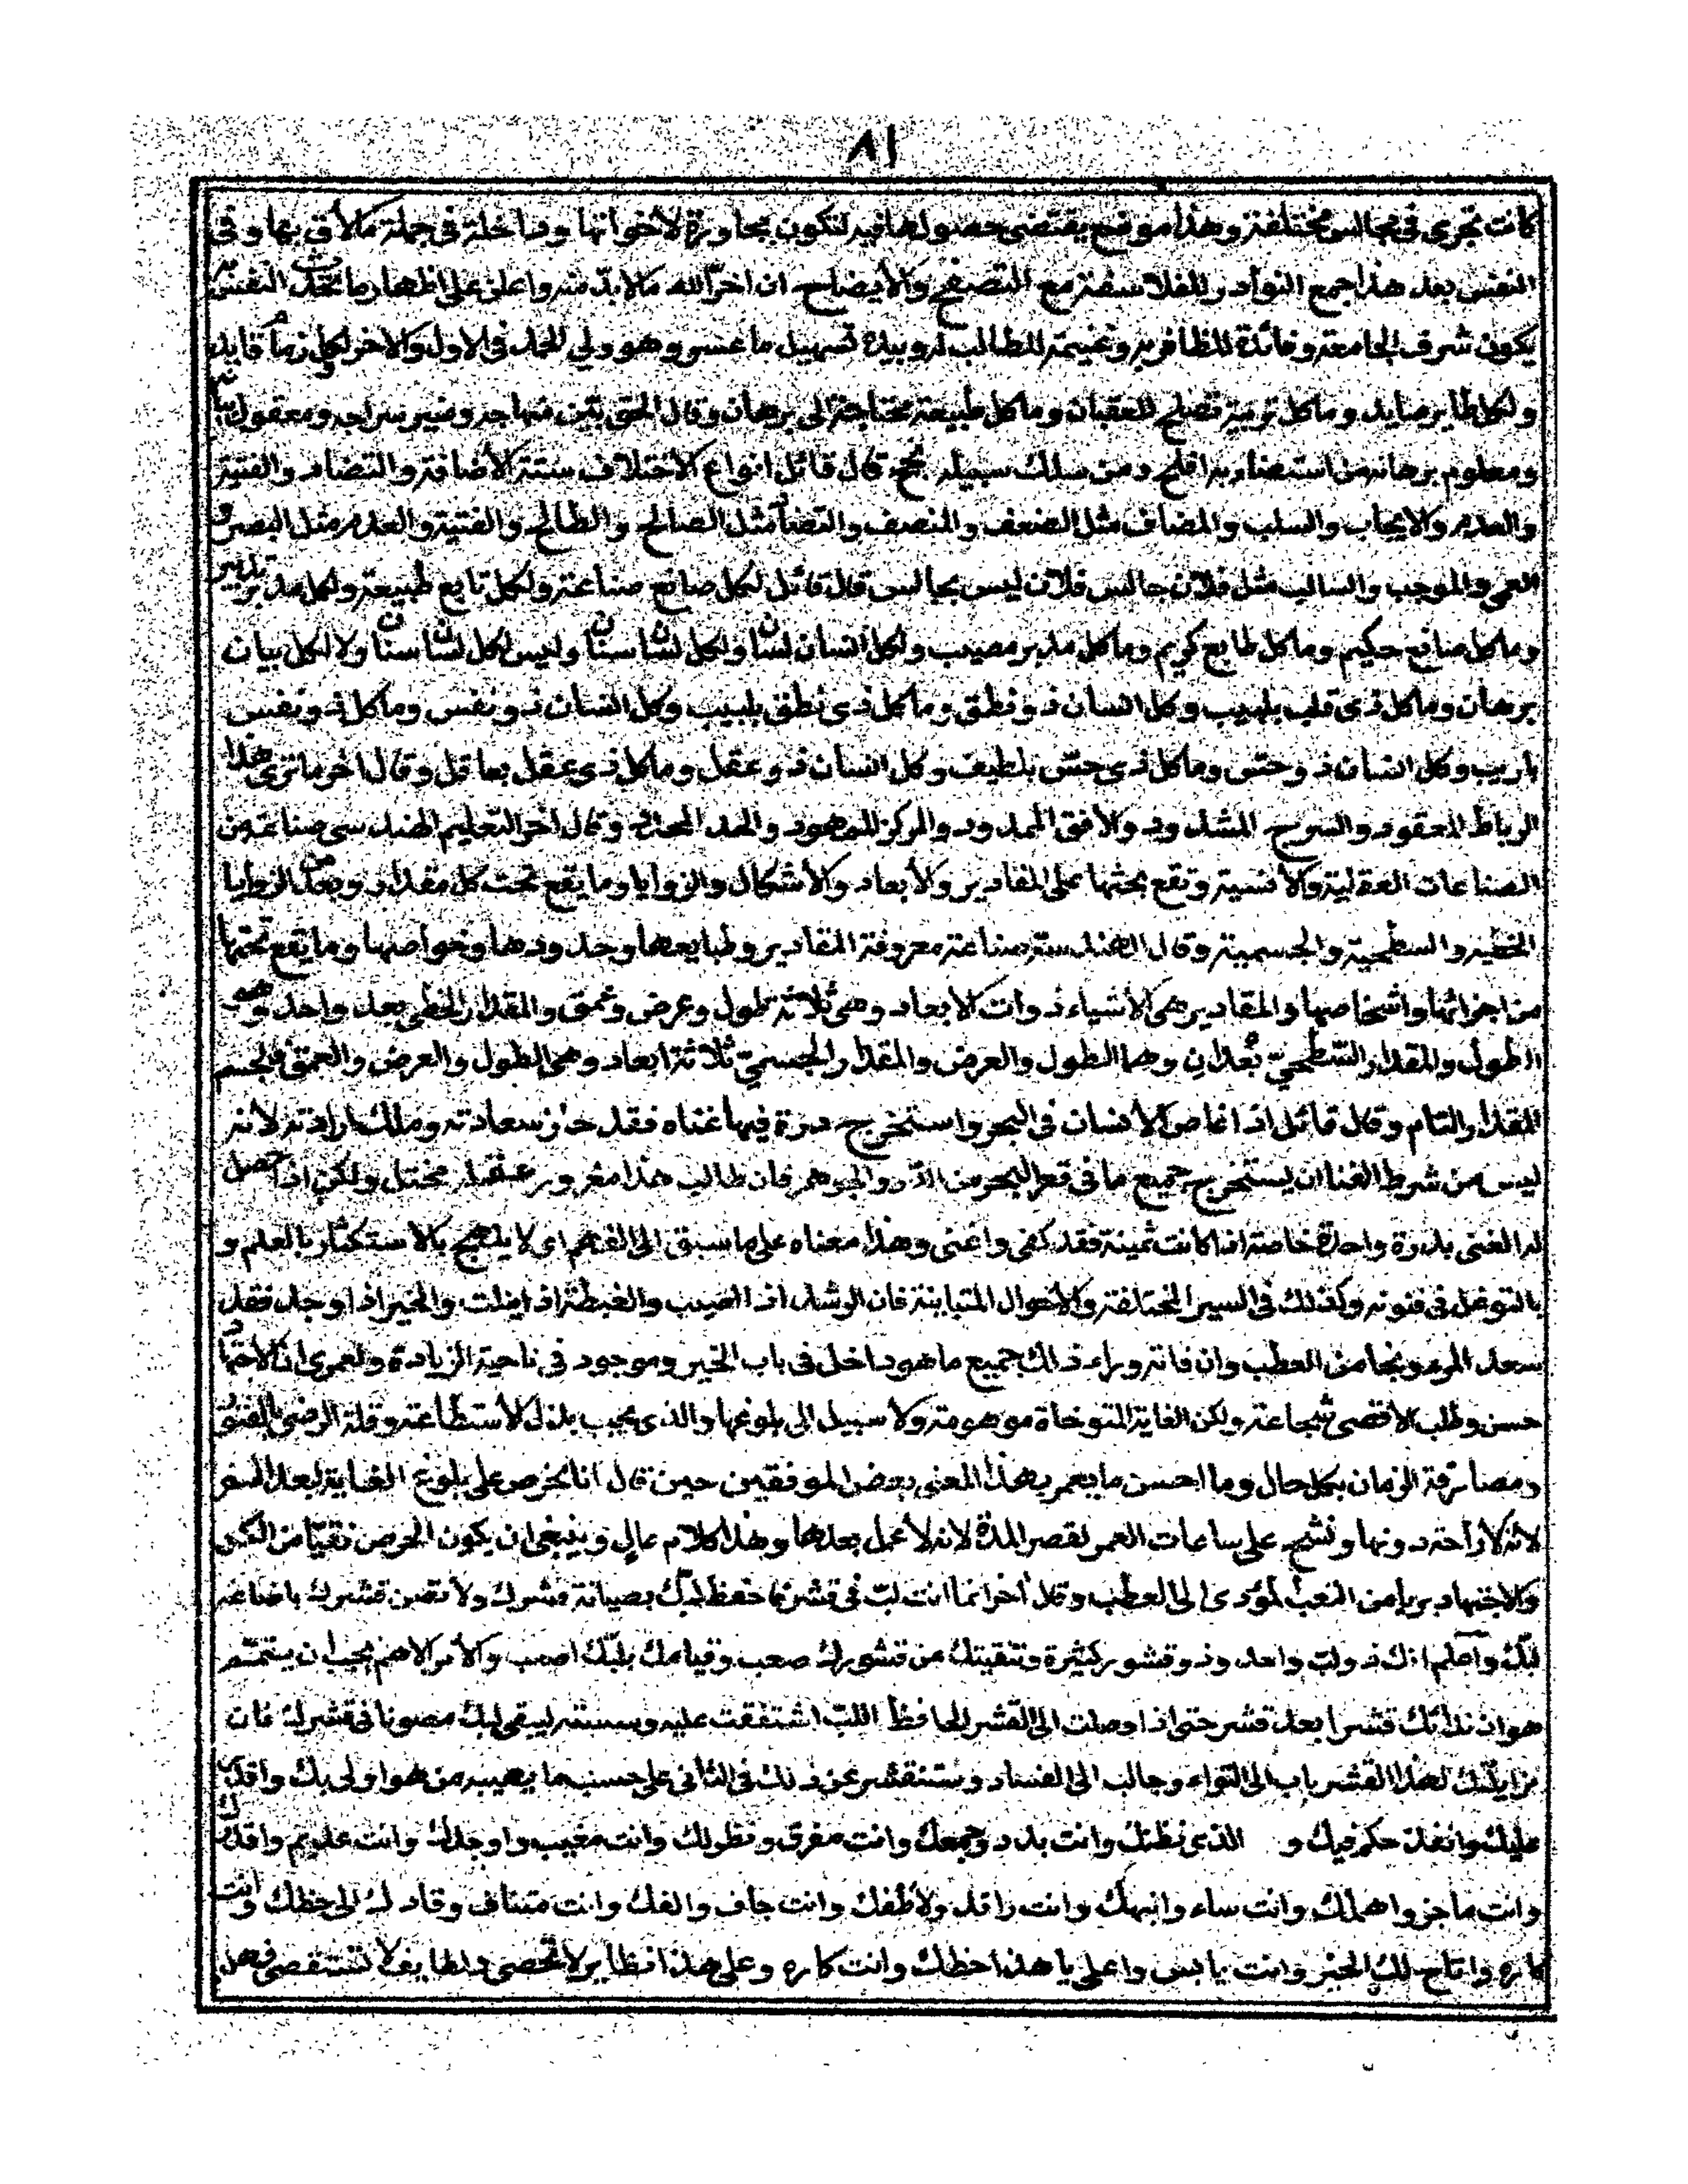 ٨١
كانت تجرى فى مجالس مختلفة وهذا موضع يقتضى حصولها فيه لتكون مجاورة لأخواتها وداخلة فى جملة ما لأق بها وفى
النفس بعد هذا جمع النوادر للفلاسفة مع التصفح والأيضاح ان اخر الله ما لا بد منه واعان على اظهار ما تحدث النفس به
يكون شرف الجامعة وفائدة للظافر به وغنيمة للطالب له وبيده تسهيل ما عسر وهو ولي الحمد فى الاول والاخر لكل زمام قايد
ولكل طاير صايد وما كل تربية تصلح للعقبان وما كل طبيعة محتاجة الى برهان وقال الحق بين منهاجه ومنير سراجه ومعقول بيانه
ومعلوم برهانه من استضاء به افلح ومن سلك سبيله نجح قال قائل انواع الاختلاف ستة الأضافة والتضاد والقنية
والعدم والايجاب والسلب والمضاف مثل الضعف والنصف والتضاد مثل الصالح والطالح والقنية والعدم مثل البصر و
العمى والموجب والسالب مثل فلان جالس فلان ليس بجالس قال قائل لكل صانع صناعة ولكل تابع طبيعة ولكل مدبر تدبير
وما كل صانع حكيم وما كل طابع كريم وما كل مدبر مصيب ولكل انسان لسان ولكل لسان سنان وليس لكل لسان سنان ولا لكل بيان
برهان وما كل ذى قلب بلبيب وكل انسان ذو نطق وما كل ذى نطق بلبيب وكل انسان ذو نفس وما كل ذو نفس
باريب وكل انسان ذو حس وما كل ذى حس بلطيف وكل انسان ذو عقل وما كل ذى عقل بعاقل وقال اخر ما ترى هذا
الرباط المعقود والسرح المشدود والافق الممدود والمركز الموهود والحد المحدد وقال اخر التعليم الهندسى صناعة من
الصناعات العقلية والأنسية وتقع بحثها على المقادير والأبعاد والأشكال والزوايا وما يقع تحت كل مقدار وبعد من الزوايا
الخطية والسطحية والجسمية وقال الهندسة صناعة معروفة المقادير وطبايعها وحدودها وخواصها وما يقع تحتها
من اجزائها واشخاصها والمقادير هى الأشياء ذوات الابعاد وهى ثلاثة طول وعرض وعمق والمقدار الخطى بعد واحد وهو
الطول والمقدار السطحيّ بُعدان وهما الطول والعرض والمقدار الجسميّ ثلاثة ابعاد وهى الطول والعرض والعمق فالجسم
المقدار التام وقال قائل اذا غاص الانسان فى البحر واستخرج درة فيها غناه فقد حاز سعادته وملك ارادته لانه
ليس من شرط الغنا ان يستخرج جميع ما فى قعر البحر من الدر والجوهر فان طالب هذا مغرور عقله مختل ولكن اذا حصل
له الغنى بدرة واحدة خاصة اذا كانت ثمينة فقد كفى واغنى وهذا معناه على ما سبق الى الفهم اى لا يلهج بالأستكثار بالعلم و
بالتوغل فى فنونه وكذلك فى السير المختلفة والاحوال المتباينة فان الرشد اذا اصيب والغبطة اذا نيلت والخير اذا وجد فقد
سعد المرء ونجا من العطب وان فاته وراء ذلك جميع ما هو داخل فى باب الخير وموجود فى ناحية الزيادة ولعمرى ان الاجتهاد
حسن وطلب الاقصى شجاعة ولكن الغاية المتوخاة موهومة ولا سبيل الى بلوغها والذى يجب بذل الأستطاعة وقلة الرضى بالفتور
ومصارفة الزمان بكل حال وما احسن ما يعمر بهذا المعنى بعض الموفقين حين قال انا نحرص على بلوغ الغاية لبعد السفر
لانه لا راحة دونها ونشح على ساعات العمر لقصر المدة لانه لا عمل بعدها وهذا كلام عالٍ وينبغى ان يكون الحرص نقيا من الكدر
والاجتهاد بريا من التعب المؤدى الى العطب وقال اخر انما انت لبّ فى قشر فاحفظ لبّك بصيانة قشرك ولا تصن قشرك باضاعة
لبّك واعلم انك ذو لبّ واحد وذو قشور كثيرة وتنقيتك من قشورك صعب وقيامك بلبّك اصعب والأمر الاهم يجب ان يتمم
هو ان تذلك قشرا بعد قشر حتى اذا وصلت الى القشر الحافظ اللب اشفقت عليه وسسته ليبقى لبك مصونا فى قشرك فان
مزايلتك لهذا القشر باب الى التواء وجالب الى الفساد وستنقشر عن ذلك فى الثانى على حسب ما يصيبه من هو اولى بك واقدر
عليك وانفذ حكم فيك و الذى نظمك وانت بدد وجمعك وانت مفرق ونظولك وانت مغيب واوجدك وانت عديم واقدرك
وانت عاجز واهملك وانت ساء وانبهك وانت راقد ولاطفك وانت جاف والفك وانت متناف وقادك الى حظك وانت
كاره واتاح لك الخير وانت يابس واعلى يا هذا حظك وانت كاره وعلى هذا نظاير لا تحصى ولطايف لا تستقصى فهل